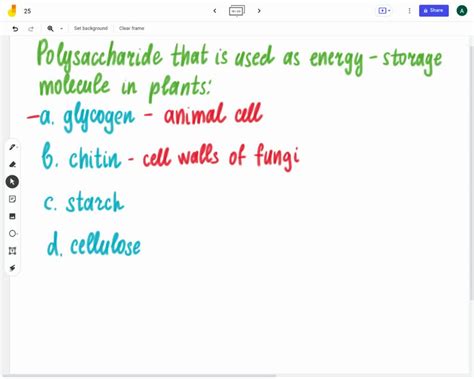 25
Share
A
Set background
Clear frame
Polysaccharide that is used as energy - storage
molecule in plants:
-a. glycogen - animal cell
b. chitin - cell walls of fungi
c. starch
d. cellulose